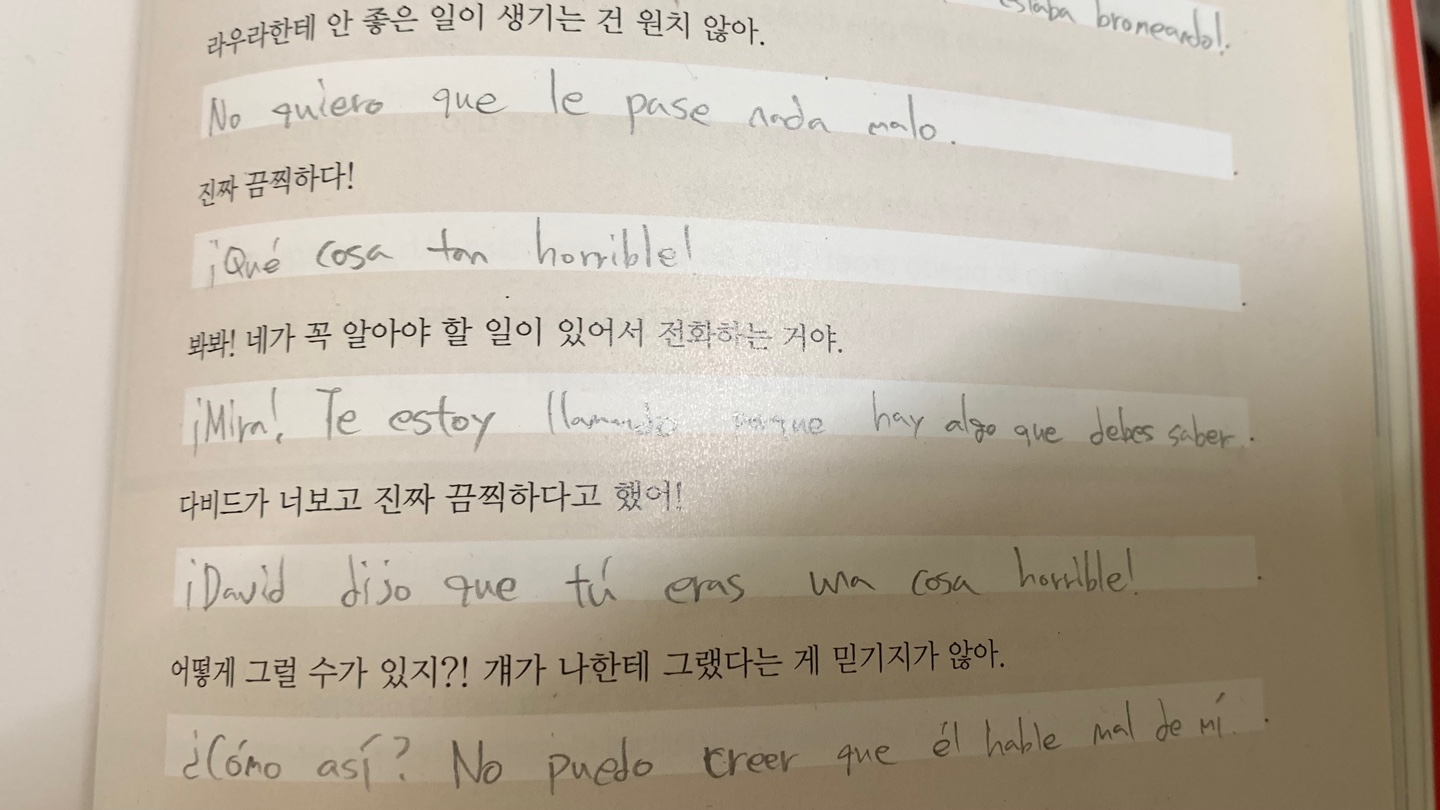 estaba broneando!.
라우라한테 안 좋은 일이 생기는 건 원치 않아.
No quiero que le pase nada malo.
진짜 끔찍하다!
¡Qué cosa tan horrible!
봐봐! 네가 꼭 알아야 할 일이 있어서 전화하는 거야.
¡Mira! Te estoy llamando porque hay algo que debes saber.
다비드가 너보고 진짜 끔찍하다고 했어!
¡David dijo que tú eras una cosa horrible!
어떻게 그럴 수가 있지?! 걔가 나한테 그랬다는 게 믿기지가 않아.
¿Cómo así? No puedo creer que él hable mal de mí.